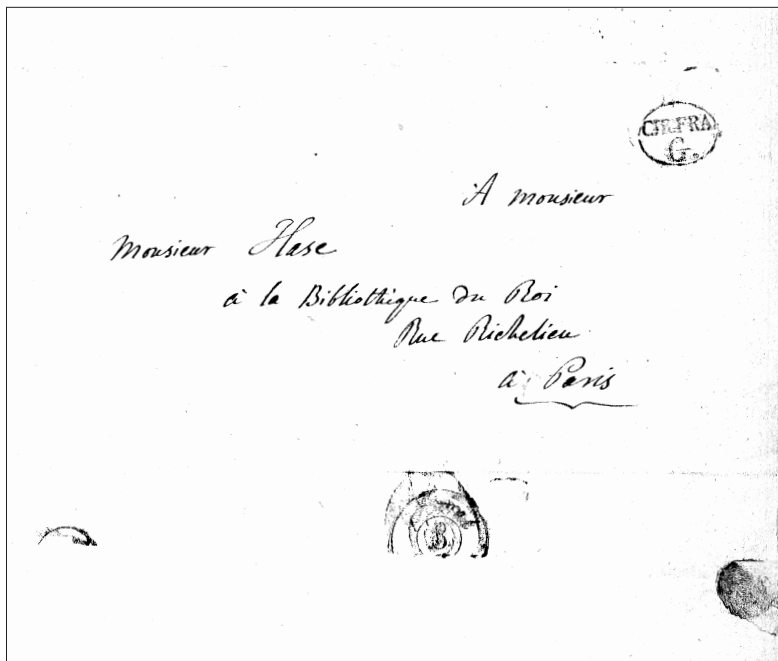 CH.FRA
G.
A monsieur
Monsieur Hase
à la Bibliothèque du Roi
Rue Richelieu
à Paris
8